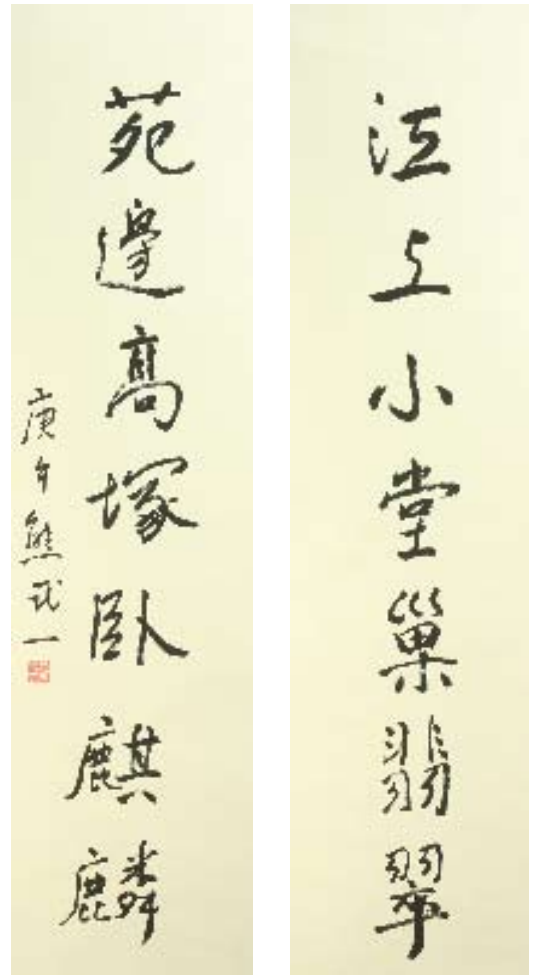 江上小堂巢翡翠
苑邊高塚臥麒麟
庚午熊式一